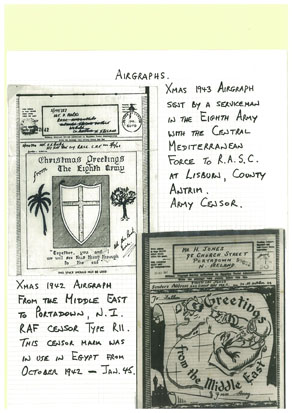 AIRGRAPHS.
XMAS 1943 AIRGRAPH
SENT BY A SERVICEMAN
IN THE EIGHTH ARMY
WITH THE CENTRAL
MEDITERRANEAN
FORCE TO R.A.S.C.
AT LISBURN, COUNTY
ANTRIM.
ARMY CENSOR.
Christmas Greetings
from The Eighth Army
"Together, you and I,
we will see this thing through
to the end"
MR H. JONES
CHURCH STREET
PORTADOWN
N. IRELAND
Greetings
from the Middle East
XMAS 1942 AIRGRAPH
FROM THE MIDDLE EAST
TO PORTADOWN, N.I.
RAF CENSOR TYPE R11.
THIS CENSOR MARK WAS
IN USE IN EGYPT FROM
OCTOBER 1942 — JAN. 45.